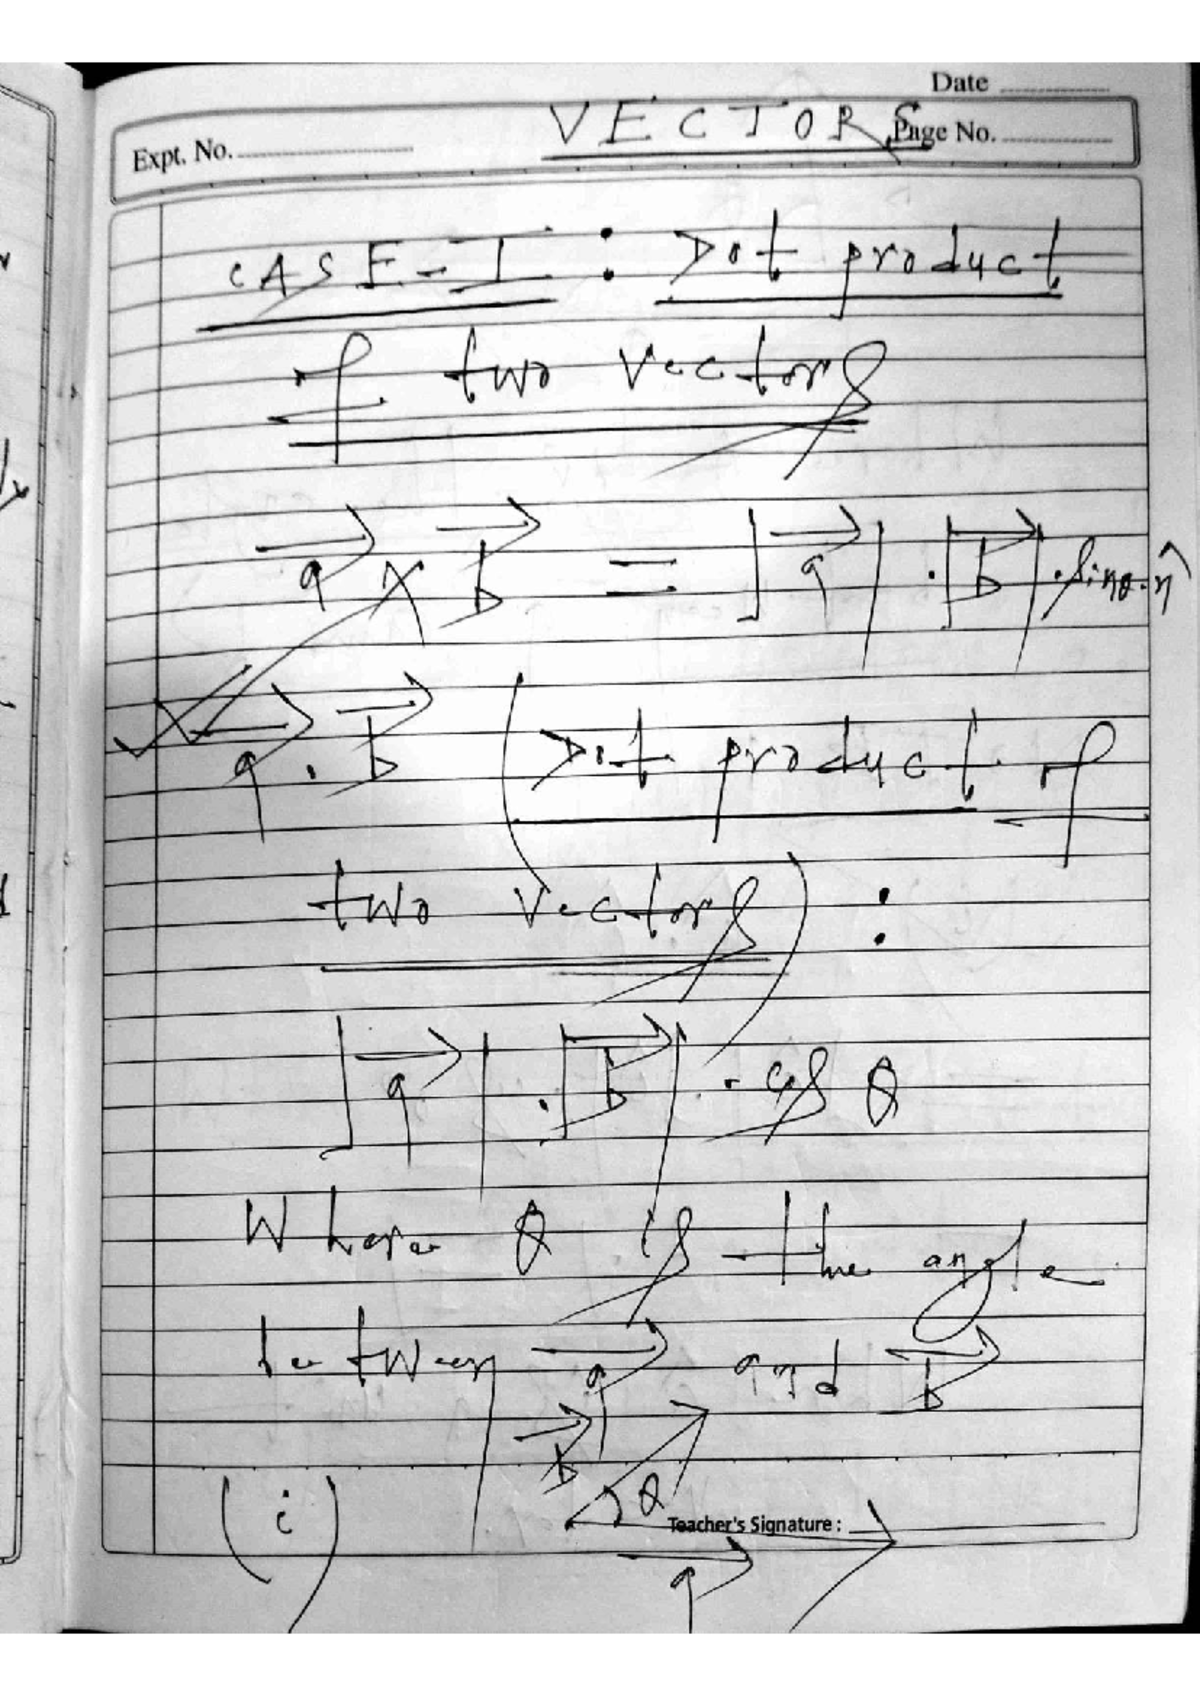 Date
VECTORS
Expt. No.
Page No.
CASE-I : Dot product
of two vectors
$\vec{a} \times \vec{b} = |\vec{a}| \cdot |\vec{b}| \cdot \sin\theta \cdot \hat{n}$
$\vec{a} \cdot \vec{b}$ (Dot product of
two vectors) :
$|\vec{a}| \cdot |\vec{b}| \cdot \cos\theta$
Where θ is the angle
between $\vec{a}$ and $\vec{b}$
$\vec{b}$
θ
(i)
Teacher's Signature :
$\vec{a}$